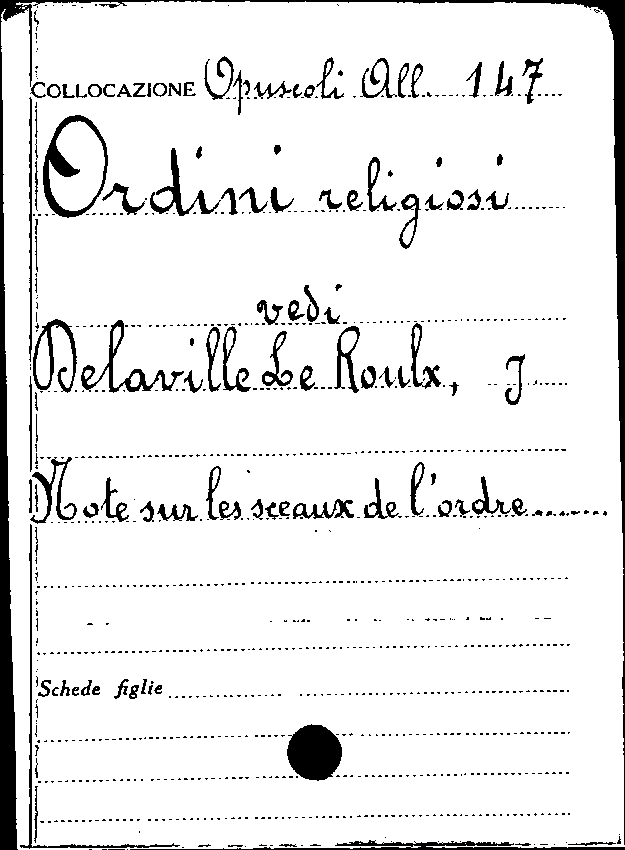 COLLOCAZIONE Opuscoli All. 147
Ordini religiosi
vedi
Delaville Le Roulx, J
Note sur les sceaux de l'ordre........
Schede figlie